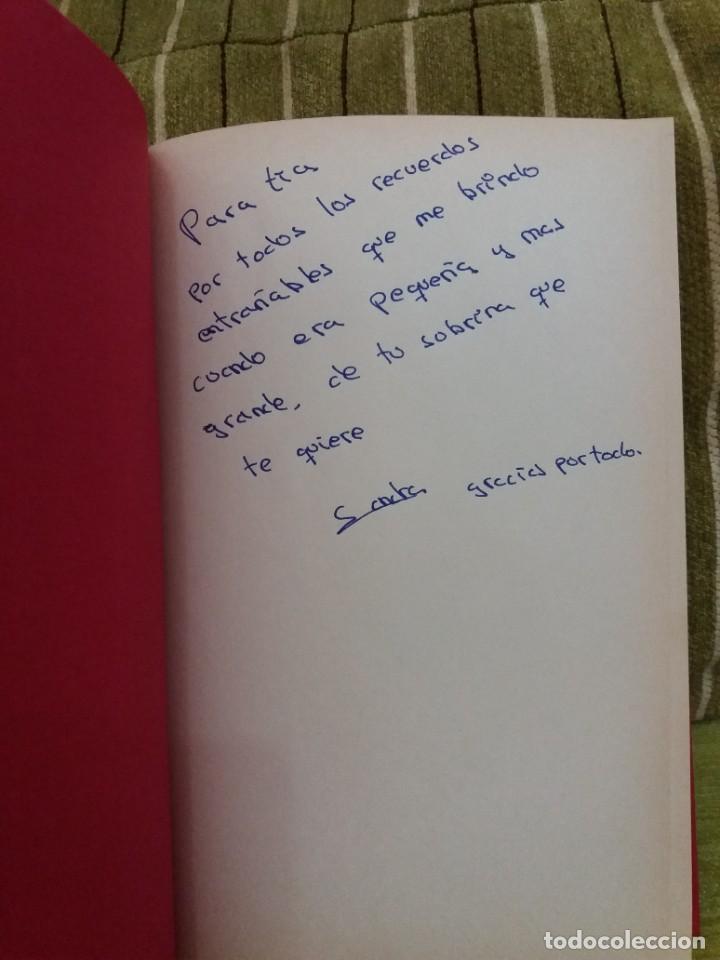 Para tia
por todos los recuerdos
entrañables que me brindo
cuando era pequeña y mas
grande, de tu sobrina que
te quiere
Sandra gracias por todo.
todocoleccion